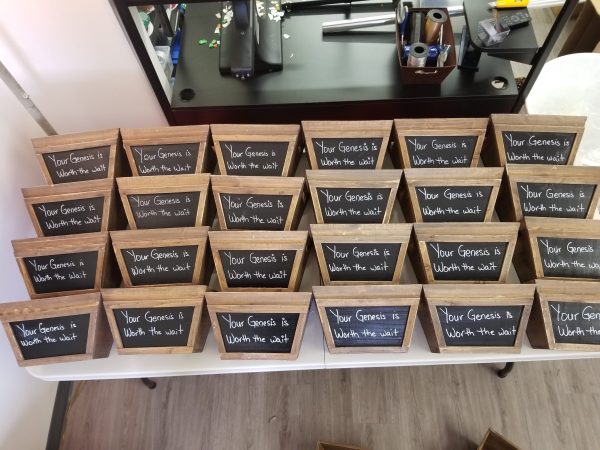 Your Genesis is
Worth the wait
Your Genesis is
Worth the wait
Your Genesis is
Worth the wait
Your Genesis is
Worth the wait
Your Genesis is
Worth the wait
Your Genesis is
Worth the wait
Your Genesis is
Worth the wait
Your Genesis is
Worth the wait
Your Genesis is
Worth the wait
Your Genesis is
Worth the wait
Your Genesis is
Worth the wait
Your Genesis is
Worth the wait
Your Genesis is
Worth the wait
Your Genesis is
Worth the wait
Your Genesis is
Worth the wait
Your Genesis is
Worth the wait
Your Genesis is
Worth the wait
Your Genesis
Worth the wait
Your Genesis is
Worth the wait
Your Genesis is
Worth the wait
Your Genesis is
Worth the wait
Your Genesis is
Worth the wait
Your Genesis is
Worth the wait
Your
Worth the